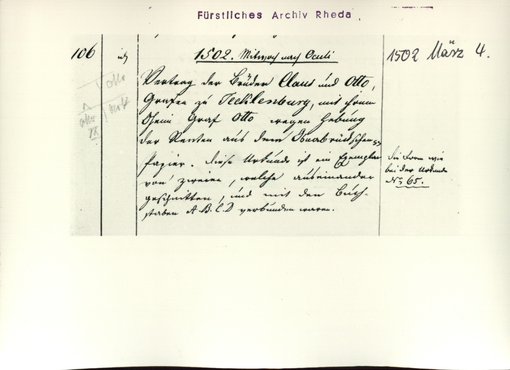 Fürstliches Archiv Rheda
106
1502. Mittwoch nach Oculi
1502 März 4.
Vertrag der Brüder Claus und Otto,
Grafen zu Tecklenburg, mit ihrem
Oheim Graf Otto wegen Hebung
der Renten aus dem Osnabrückschen
papier. Diese Urkunde ist ein Exemplar
von zweien, welche auseinander
geschnitten, und mit den Buch-
staben A. B. C. D verbunden waren.
die Form wie
bei der Urkunde
No. 65.